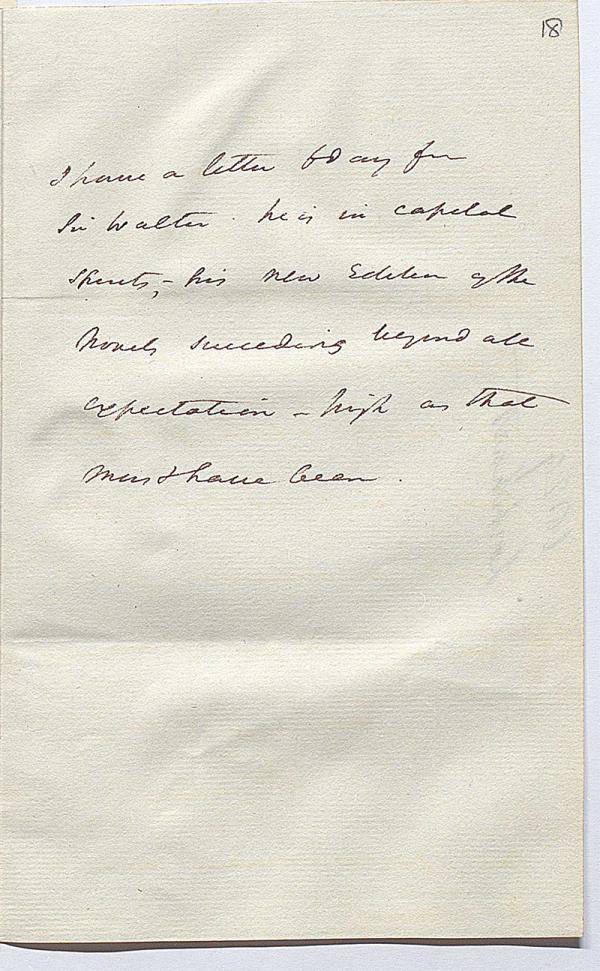 18
I have a letter to day fm
Sir Walter. he is in capital
spirits, - his new Edition of the
Novels succeeding beyond all
expectation - high as that
must have been.